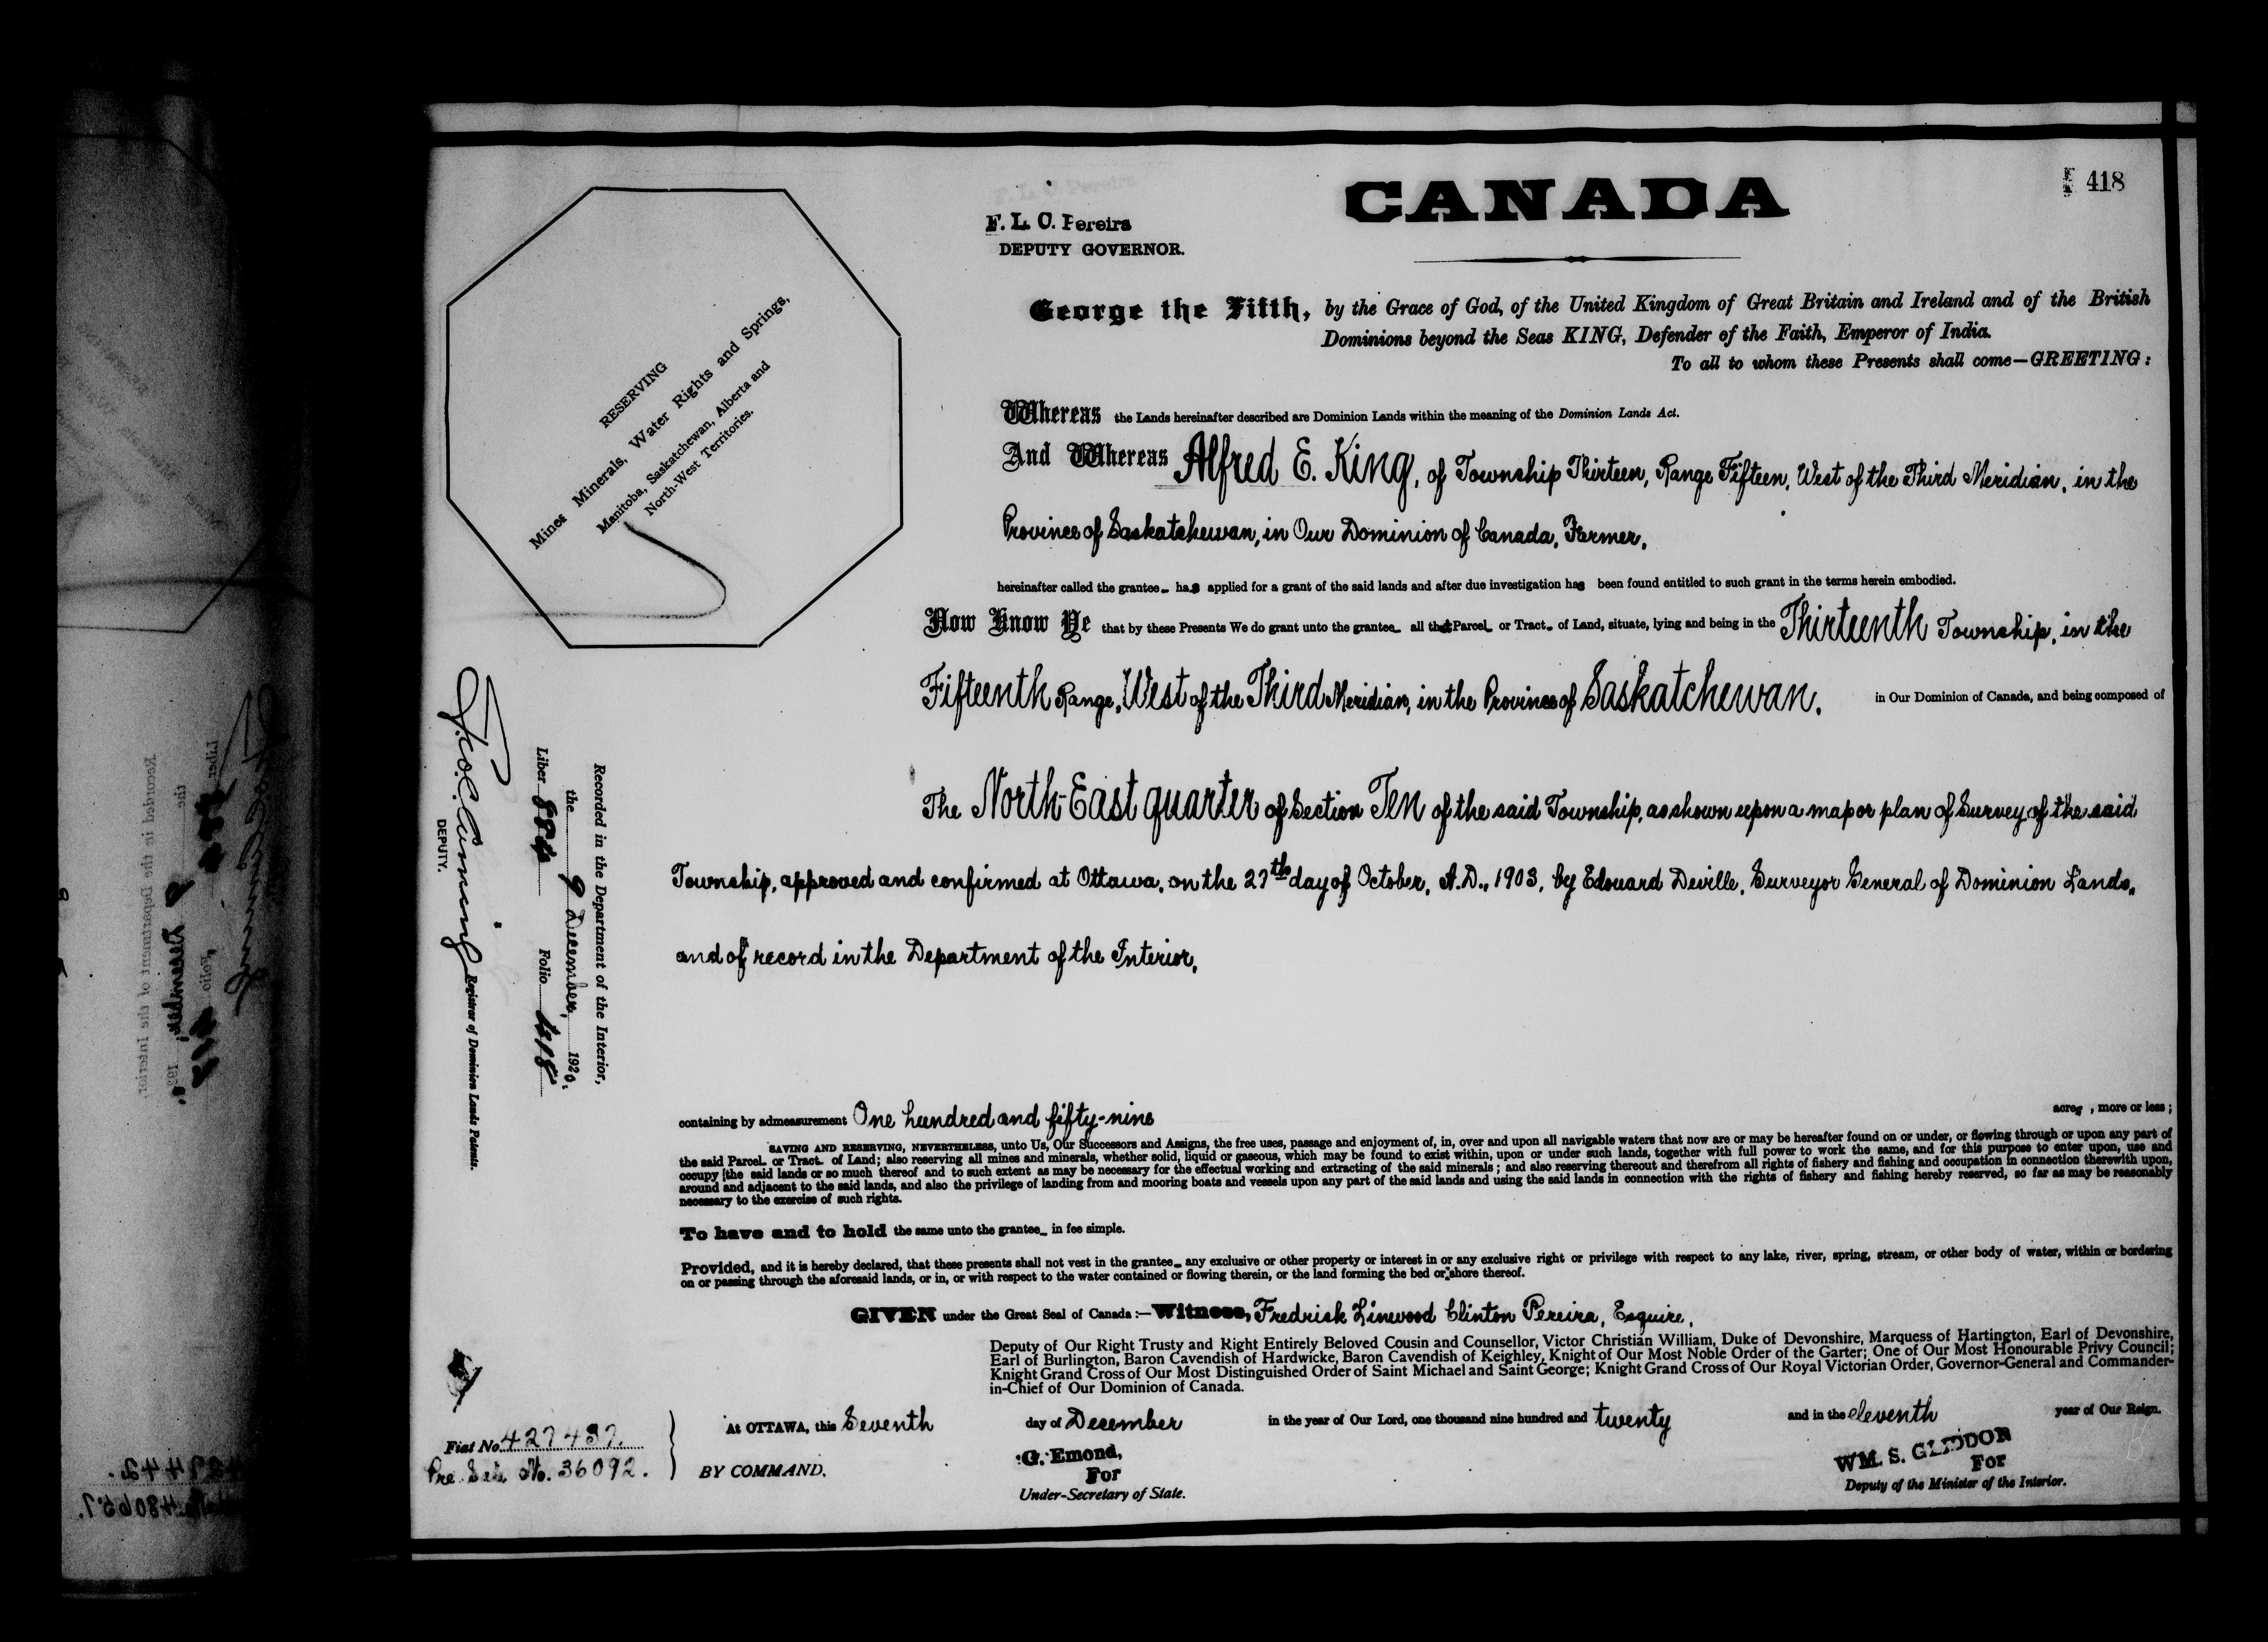 CANADA
418
F. L. C. Pereira
DEPUTY GOVERNOR.
George the Fifth, by the Grace of God, of the United Kingdom of Great Britain and Ireland and of the British
Dominions beyond the Seas KING, Defender of the Faith, Emperor of India.
To all to whom these Presents shall come—GREETING:
RESERVING
Mines Minerals, Water Rights and Springs,
Manitoba, Saskatchewan, Alberta and
North-West Territories.
Whereas the Lands hereinafter described are Dominion Lands within the meaning of the Dominion Lands Act.
And Whereas Alfred E. King, of Township Thirteen, Range Fifteen, West of the Third Meridian, in the
Province of Saskatchewan, in Our Dominion of Canada, Farmer,
hereinafter called the grantee has applied for a grant of the said lands and after due investigation has been found entitled to such grant in the terms herein embodied.
Now Know Ye that by these Presents We do grant unto the grantee all that Parcel or Tract of Land, situate, lying and being in the Thirteenth Township, in the
Fifteenth Range, West of the Third Meridian, in the Province of Saskatchewan, in Our Dominion of Canada, and being composed of
The North-East quarter of Section Ten of the said Township, as shown upon a map or plan of Survey of the said
Township, approved and confirmed at Ottawa, on the 27th day of October, A.D., 1903, by Edouard Deville, Surveyor General of Dominion Lands,
and of record in the Department of the Interior,
Recorded in the Department of the Interior,
the 9 December, 1920.
Liber 884 Folio 418
Registrar of Dominion Lands Patents.
DEPUTY.
containing by admeasurement One hundred and fifty-nine acres, more or less;
SAVING AND RESERVING, NEVERTHELESS, unto Us, Our Successors and Assigns, the free uses, passage and enjoyment of, in, over and upon all navigable waters that now are or may be hereafter found on or under, or flowing through or upon any part of
the said Parcel or Tract of Land; also reserving all mines and minerals, whether solid, liquid or gaseous, which may be found to exist within, upon or under such lands, together with full power to work the same, and for this purpose to enter upon, use and
occupy the said lands or so much thereof and to such extent as may be necessary for the effectual working and extracting of the said minerals; and also reserving thereout and therefrom all rights of fishery and fishing and occupation in connection therewith upon,
around and adjacent to the said lands, and also the privilege of landing from and mooring boats and vessels upon any part of the said lands and using the said lands in connection with the rights of fishery and fishing hereby reserved, so far as may be reasonably
necessary to the exercise of such rights.
To have and to hold the same unto the grantee in fee simple.
Provided, and it is hereby declared, that these presents shall not vest in the grantee any exclusive or other property or interest in or any exclusive right or privilege with respect to any lake, river, spring, stream, or other body of water, within or bordering
on or passing through the aforesaid lands, or in, or with respect to the water contained or flowing therein, or the land forming the bed or shore thereof.
GIVEN under the Great Seal of Canada:—Witness, Fredrick Linwood Clinton Pereira, Esquire,
Deputy of Our Right Trusty and Right Entirely Beloved Cousin and Counsellor, Victor Christian William, Duke of Devonshire, Marquess of Hartington, Earl of Devonshire,
Earl of Burlington, Baron Cavendish of Hardwicke, Baron Cavendish of Keighley, Knight of Our Most Noble Order of the Garter; One of Our Most Honourable Privy Council;
Knight Grand Cross of Our Most Distinguished Order of Saint Michael and Saint George; Knight Grand Cross of Our Royal Victorian Order, Governor-General and Commander-
in-Chief of Our Dominion of Canada.
At OTTAWA, this Seventh day of December in the year of Our Lord, one thousand nine hundred and twenty and in the eleventh year of Our Reign.
Fiat No. 427487.
Pre. Sale No. 36092.
BY COMMAND.
G. Emond,
For
Under-Secretary of State.
WM. S. GLIDDON
For
Deputy of the Minister of the Interior.